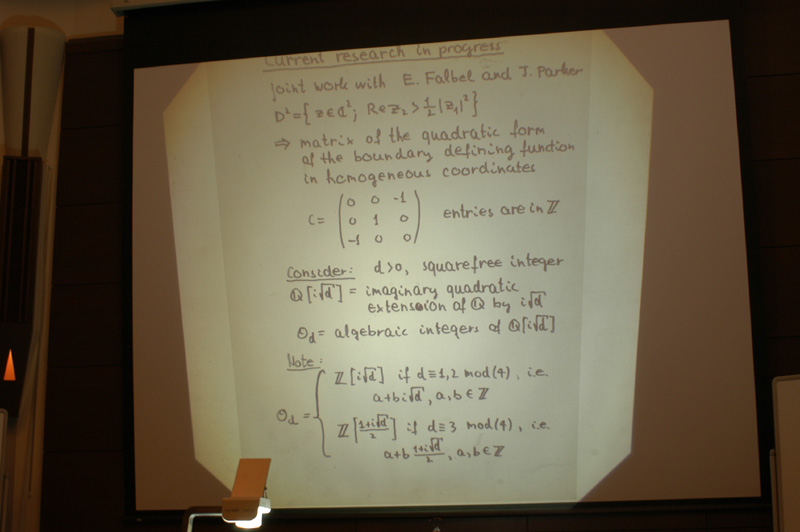 Current research in progress
joint work with E. Falbel and J. Parker
D² = { z ∈ ℂ²; Re z₂ > ½|z₁|² }
⇒ matrix of the quadratic form
of the boundary defining function
in homogeneous coordinates
C = ( 0 0 -1
0 1 0
-1 0 0 ) entries are in ℤ
Consider: d>0, squarefree integer
ℚ[i√d] = imaginary quadratic
extension of ℚ by i√d
Θd = algebraic integers of ℚ[i√d]
Note:
Θd = { ℤ[i√d] if d ≡ 1,2 mod(4), i.e.
a+bi√d, a,b ∈ ℤ
ℤ[(1+i√d)/2] if d ≡ 3 mod(4), i.e.
a+b (1+i√d)/2, a,b ∈ ℤ